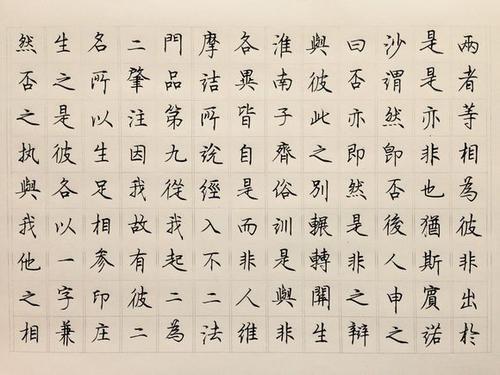 兩者等相為彼非出於
是是亦非也猶斯賓諾
沙謂然即否後人申之
曰否亦即然是非之辯
與彼此之別輾轉關生
淮南子齊俗訓是與非
各異皆自是而非人維
摩詰所說經入不二法
門品第九從我起二為
二肇注因我故有彼二
名所以生足相參印庄
生之是彼各以一字兼
然否之执與我他之相